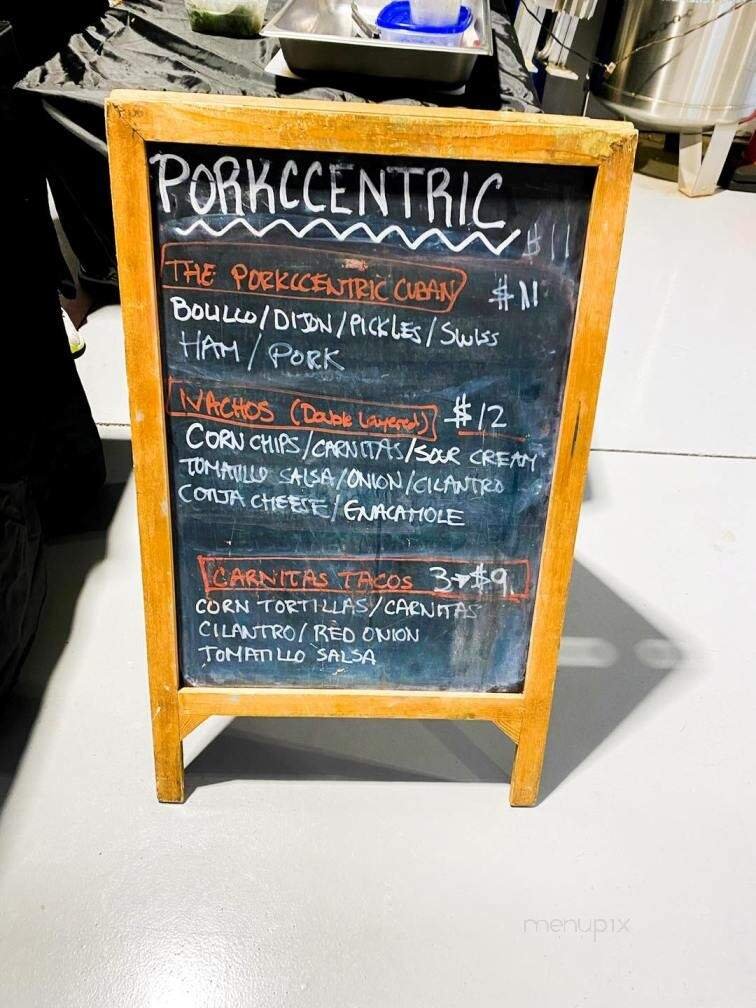 PORKCCENTRIC
$11
THE PORKCCENTRIC CUBAN $11
BOLILLO/DIJON/PICKLES/SWISS
HAM/PORK
NACHOS (Double Layered!) $12
CORN CHIPS/CARNITAS/SOUR CREAM
TOMATILLO SALSA/ONION/CILANTRO
COTIJA CHEESE/GUACAMOLE
CARNITAS TACOS 3→$9
CORN TORTILLAS/CARNITAS
CILANTRO/RED ONION
TOMATILLO SALSA
menupix